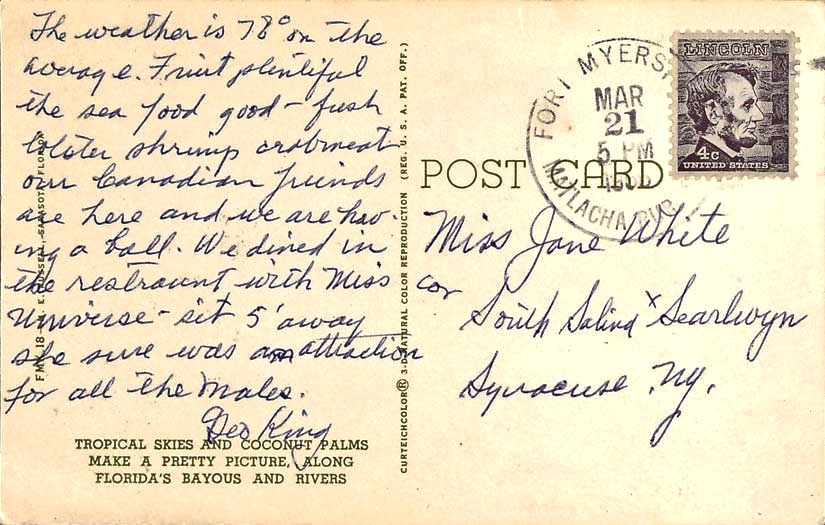 The weather is 78° on the
average. Fruit plentiful
the sea food good - fresh
lobster shrimp crabmeat
our Canadian friends
are here and we are hav-
ing a ball. We dined in
the restraunt with Miss
Universe - sit 5' away
she sure was an attraction
for all the males.
Geo King
TROPICAL SKIES AND COCONUT PALMS
MAKE A PRETTY PICTURE, ALONG
FLORIDA'S BAYOUS AND RIVERS
SARASOTA, FLORIDA
CURTEICHCOLOR® 3-D NATURAL COLOR REPRODUCTION (REG. U. S. A. PAT. OFF.)
POST CARD
FORT MYERS
MAR
21
5 PM
MATLACHA
LINCOLN
4c
UNITED STATES
Miss Jane White
cor
South Salina x Searlwyn
Syracuse N.y.